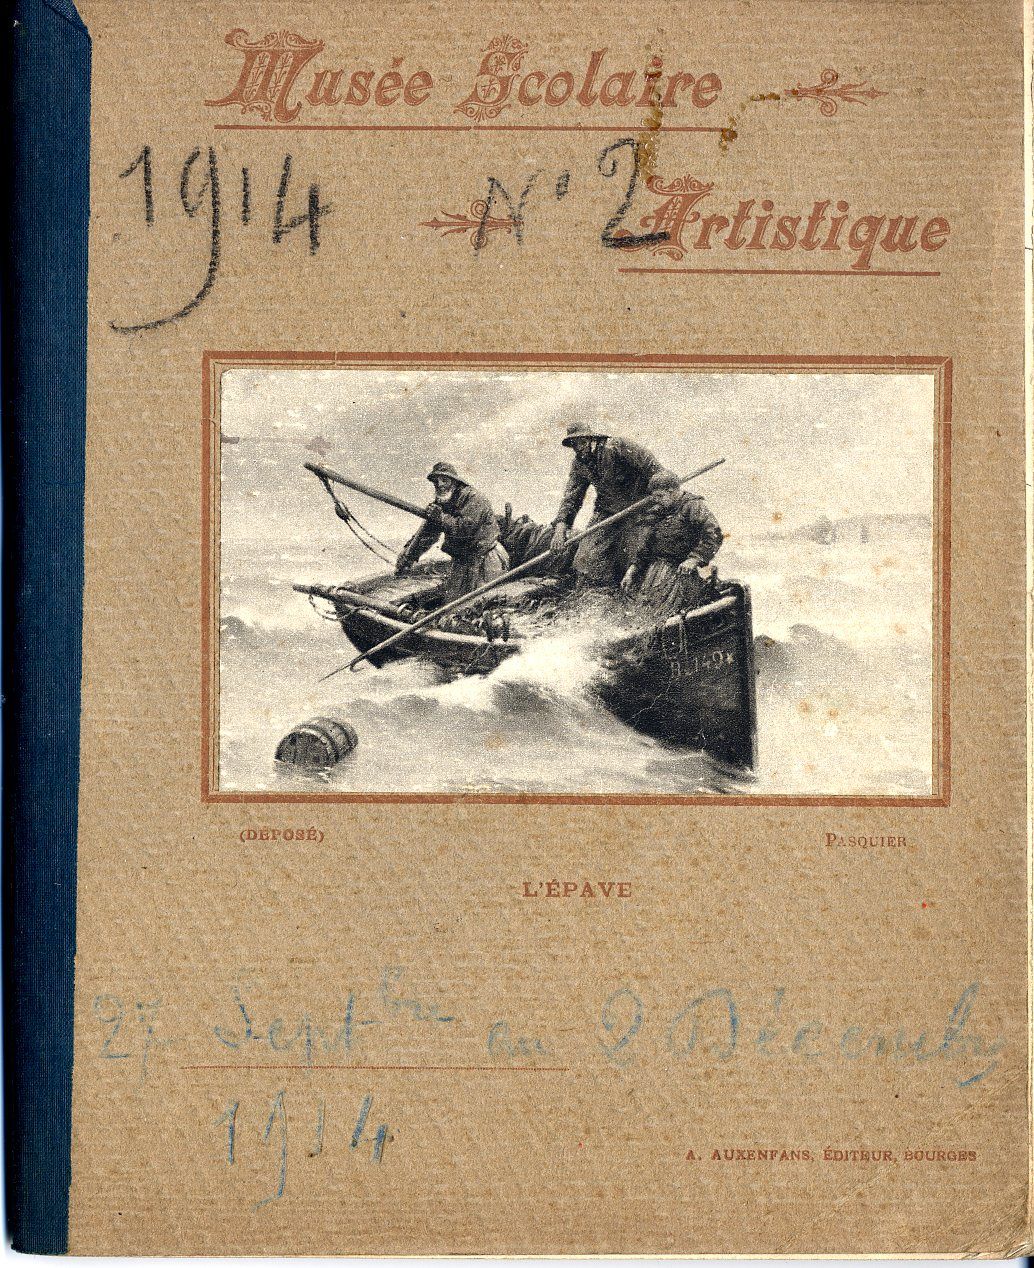 Musée Scolaire
1914 N° 2
Artistique
(DÉPOSÉ) PASQUIER
L'ÉPAVE
27 Septbre au 2 Décembre
1914
A. AUXENFANS, ÉDITEUR, BOURGES